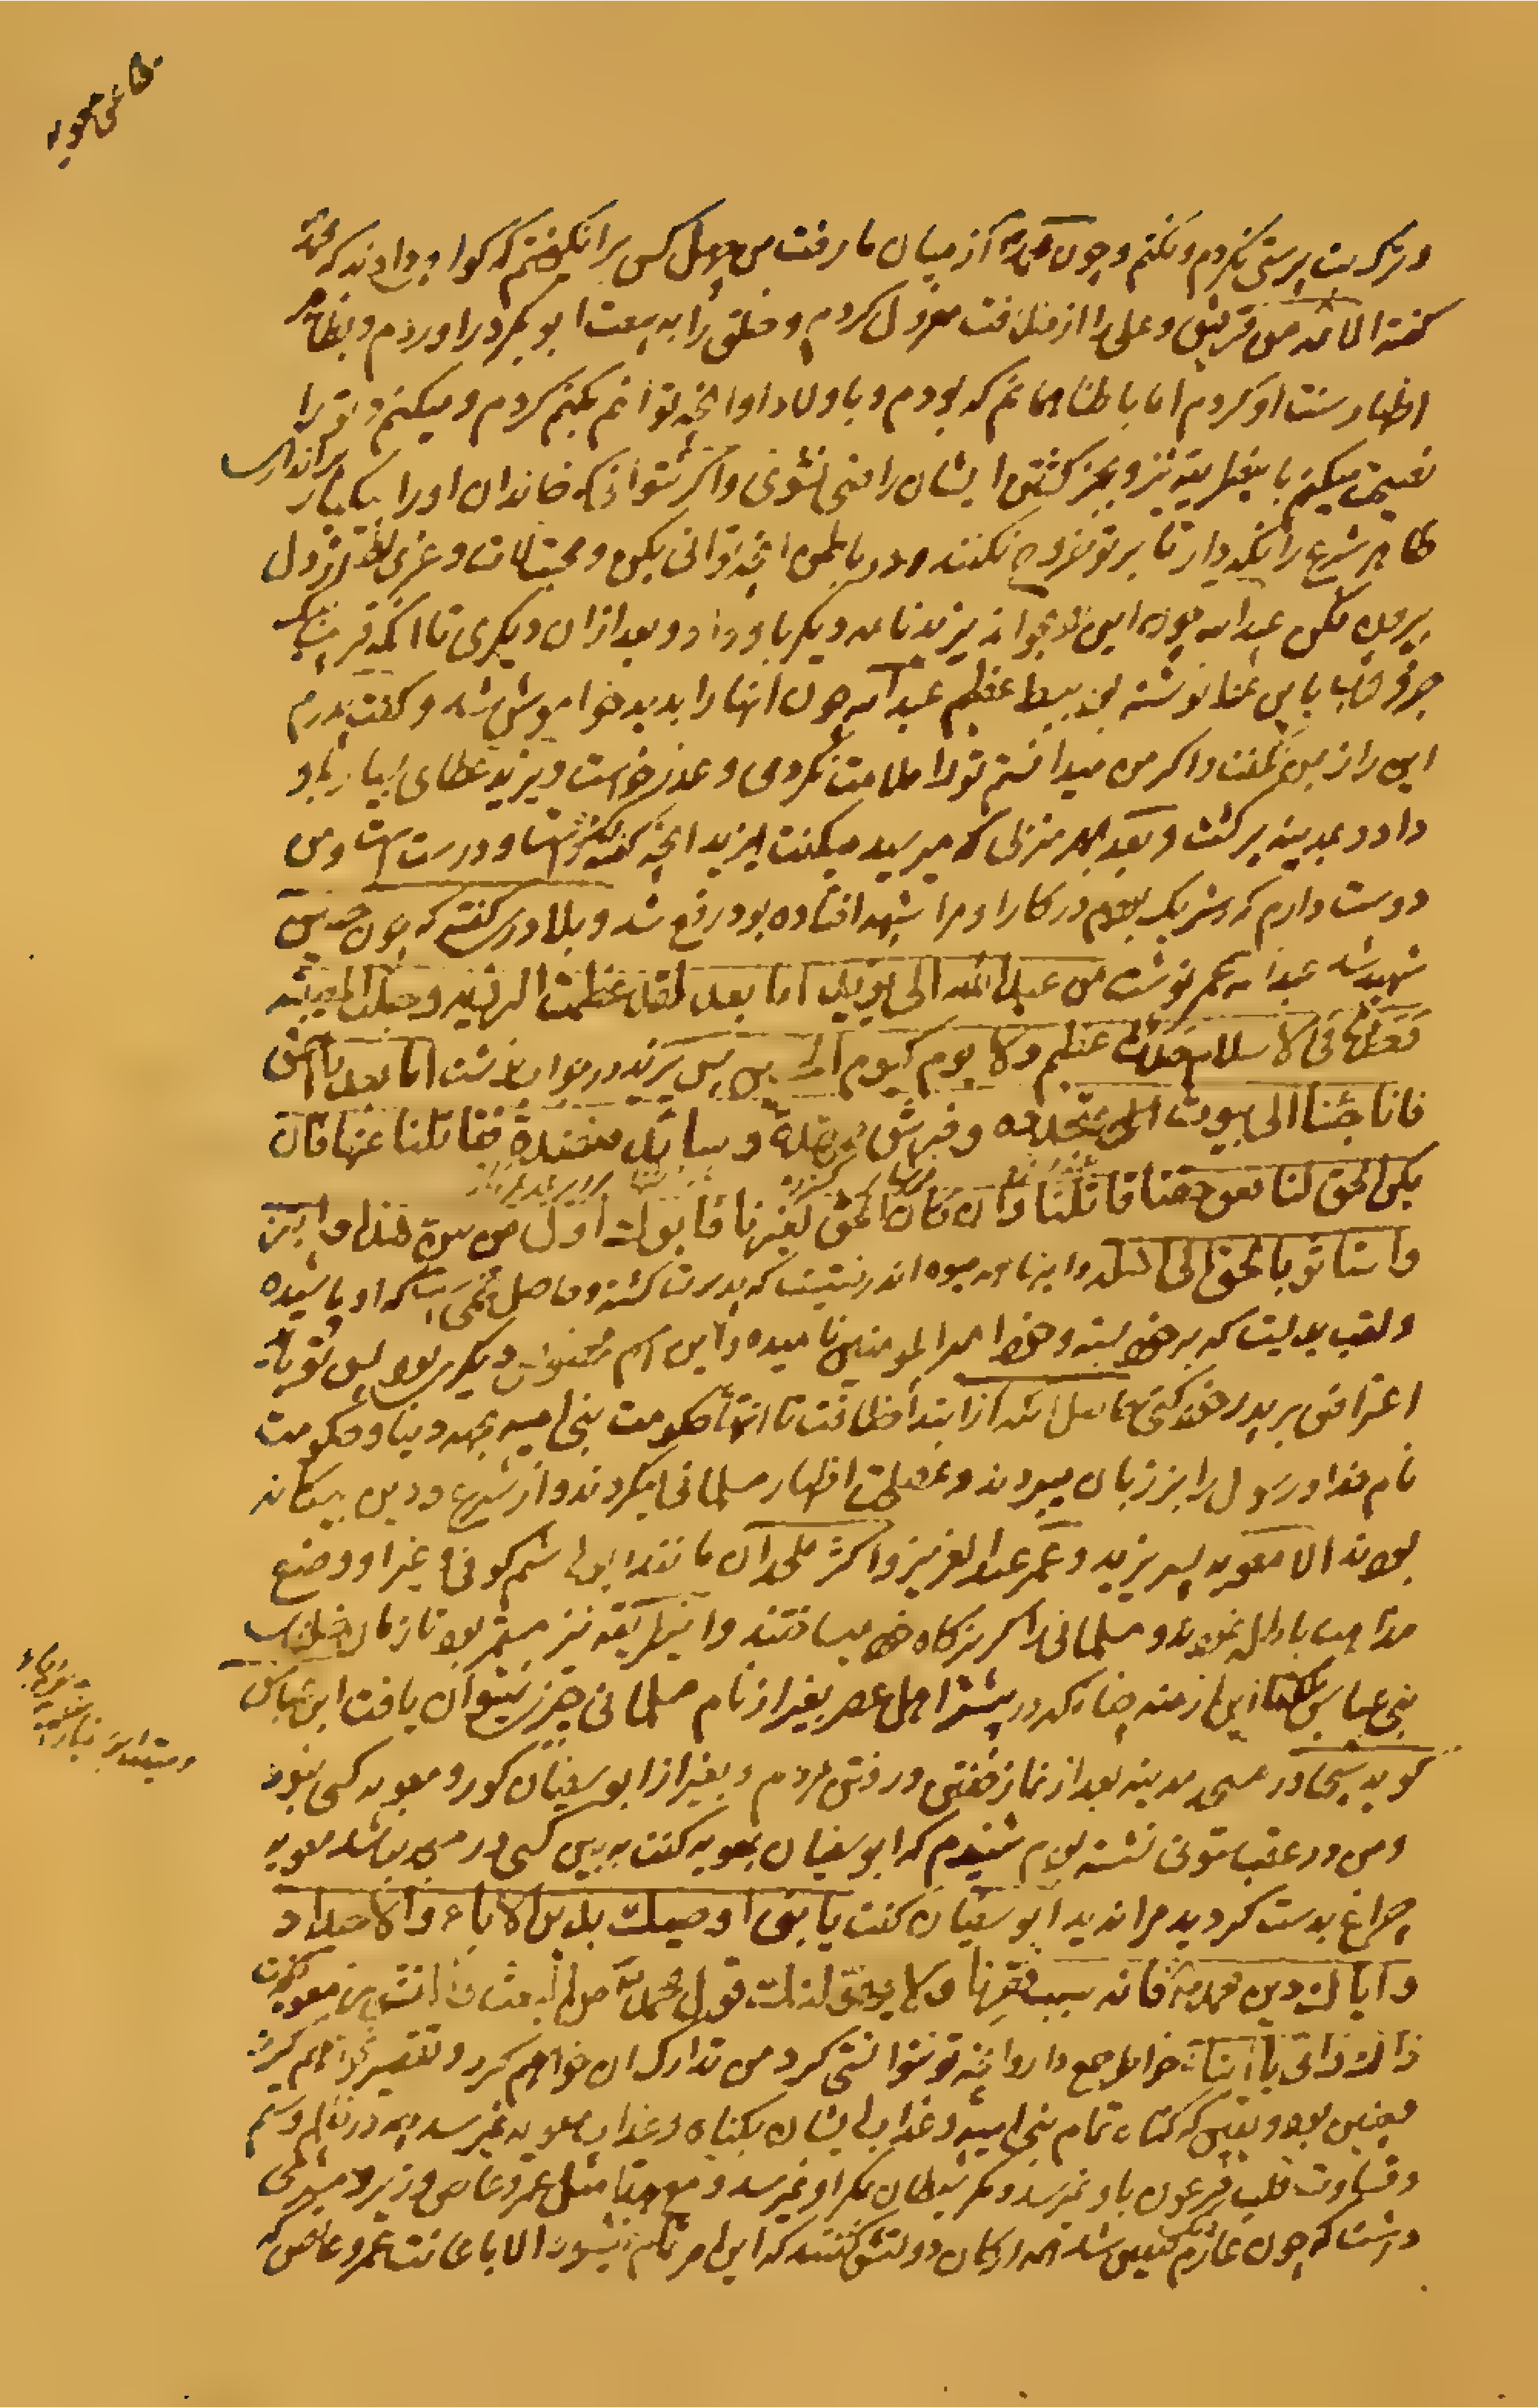 و ترک بت پرستی نکردم و نکنم و چون محمد از میان ما رفت من چهل کس برانگیختم که گواهی دادند که محمد
گفته الائمة من قریش و علی را از خلافت معزول کردم و خلق را به بیعت ابوبکر دراوردم و بظاهر
اظهار سنت او کردم اما باطنا همانم که بودم و با اولاد او انچه توانم بکنم کردم و میکنم و تو را
نصیحت میکنم باینطریقه نیز و بجز کشتن ایشان راضی نشوی و اگر بتوانی که خاندان او را بیکبار براندازی
ظاهر شرع را نگهدار تا بر تو خروج نکنند و در باطن انچه توانی بکن و محبت لات و عزی از دل
بیرون مکن عبدالله چون این بخواند یزید نامه دیگر باو داد و بعد از ان دیگری تا انکه قریب
باین نوشته بود عبدالله چون انها را بدید خواموش شد و گفت پدرم
این راز بمن نگفت و اگر من میدانستم تو را ملامت نکردمی و عذر خواست و یزید عطای بسیار باو
داد و بمدینه برگشت و بعد بهر منزلی که میرسید میگفت یزید انچه گفته و درست است و من
دوست دارم که شریک بودم در کار او و مرا شبهه افتاده بود رفع شد و بلاذری گفته که چون حسین
شهید شد عبدالله عمر نوشت من عبدالله الی یزید اما بعد لقد عظمت الرزیة و جلت المصیبة
فی الاسلام حدث عظیم و لا یوم کیوم الحسین پس یزید در جواب نوشت اما بعد یا احمق
فانا جئنا الی بیوت متجددة و فرش ممهدة و وسائد منضدة فقاتلنا عنها فان
یکن الحق لنا فعن حقنا قاتلنا و ان کان الحق لغیرنا فابوک اول من سن هذا و ابتز
و استاثر بالحق علی اهله و این نامه میوه اندرختیست که پدرت کشته و حاصل تخمی است که او پاشیده
و لقب بدیست که بر خود بسته و خود را امیرالمومنین نامیده و این اسم مخصوص دیگری بود پس تو باید
اعتراض بر پدر خود کنی حاصل انکه از ابتدا خلافت تا انتهأ حکومت بنی امیه بجهه دنیا و حکومت
نام خدا و رسول را بر زبان میبردند و بمصلحت اظهار مسلمانی میکردند و از شرع و دین بیگانه
بودند الا معویه پسر یزید و عمر عبدالعزیز و اکثر ملحدان مانند ابوهاشم کوفی و غیر او وضع
مذاهب باطله نمودند و مسلمانی را گریزگاه خود میساختند و اینطریقه نیز مستمر بود تا زمان خلافت
بنی عباس این ازمنه چنانکه در بیشتر اهل عصر بغیر از نام مسلمانی چیزی نمیتوان یافت ابن عباس
گوید در مسجد مدینه بعد از نماز خفتن و رفتن مردم و بغیر از ابوسفیان کور و معویه کسی نبود
و من در عقب ستونی نشسته بودم شنیدم که ابوسفیان بمعویه گفت ببین کسی در مسجد نباشد معویه
چراغ بدست گردید مرا ندید ابوسفیان گفت یا بنی اوصیک بدین الاباء و الاجداد
و ایاک و دین محمد فانه سبب فقرنا و لا لذلک قول محمد من البعث معویه گفت
ذالک ذاتی یا ابتاه خواطر جمع دار انچه تو نتوانستی کرد من تدارک ان خواهم کرد و تقصیر نخواهم کرد
همچنین بود و یقین که گناه تمام بنی امیه و عذاب ایشان بگناه و عذاب معویه نمیرسد چه در ظلم و ستم
و قساوت قلب فرعون باو نمیرسد و مکر شیطان بمکر او نمیرسد و مع هذا مثل عمروعاص وزیر و مشیری
داشت که چون عازم صفین شد همه ارکان دولتش گفتند که این امر تمام نیشود الا باعانت عمروعاص که